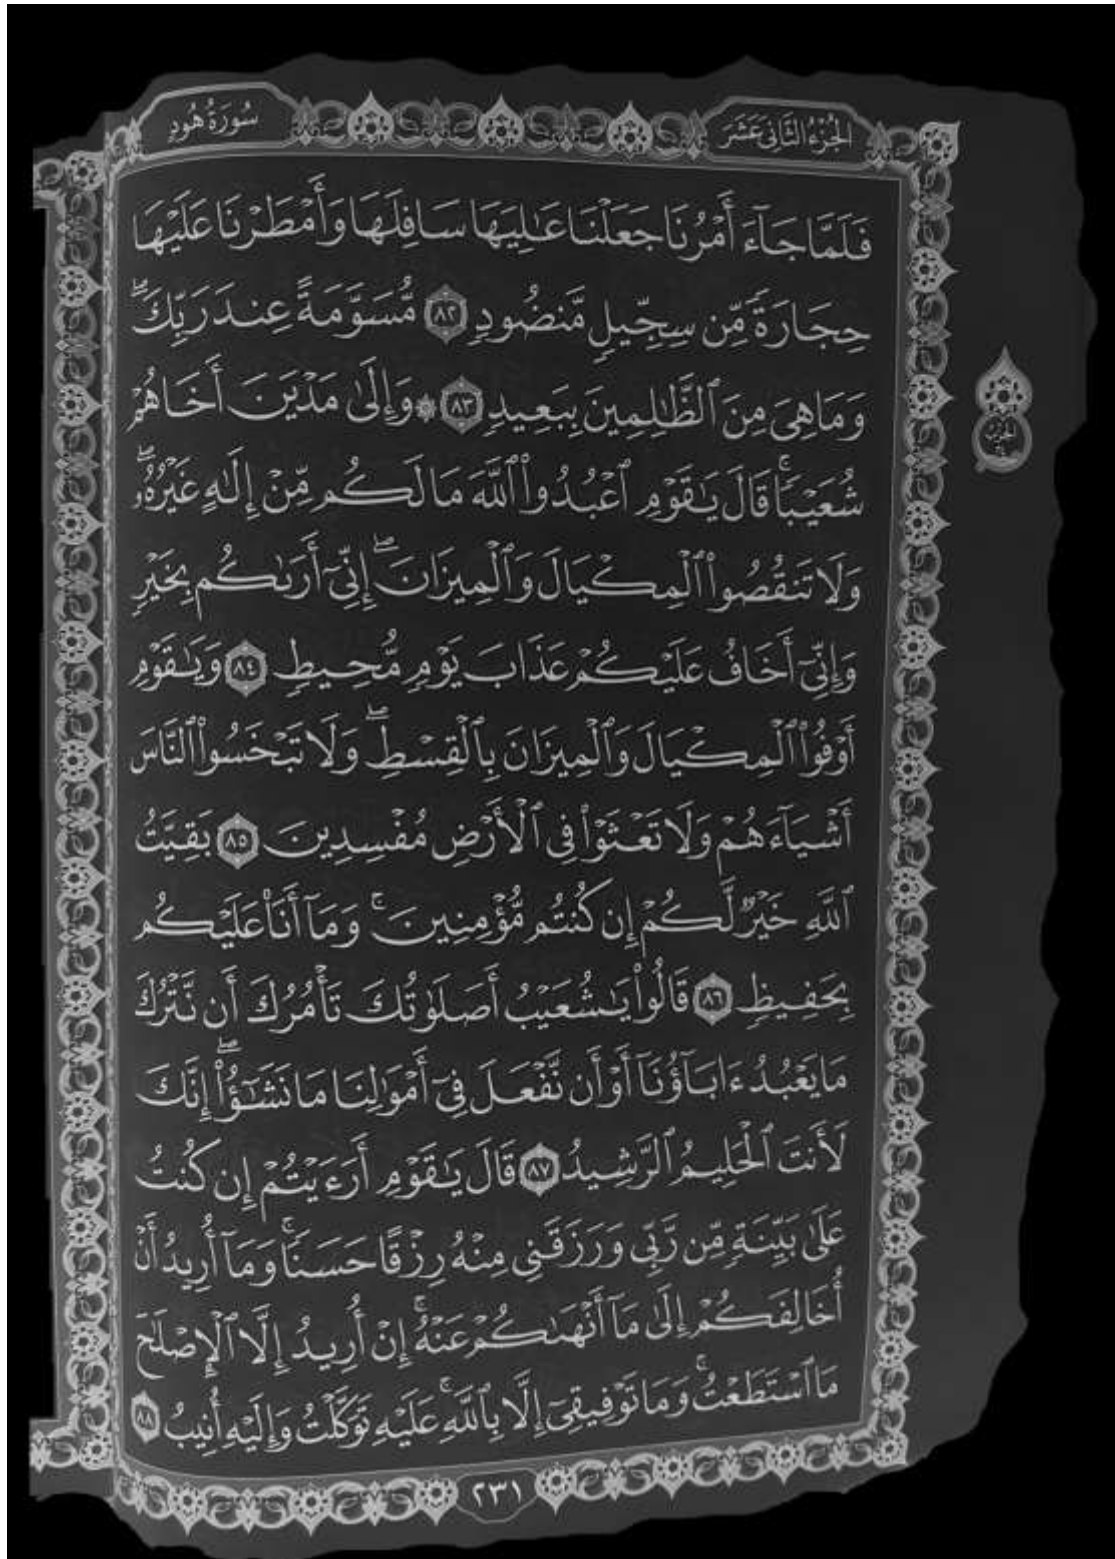 الجُزْءُ الثَّانِي عَشَرَ
سُورَةُ هُودٍ
فَلَمَّا جَآءَ أَمْرُنَا جَعَلْنَا عَٰلِيَهَا سَافِلَهَا وَأَمْطَرْنَا عَلَيْهَا
حِجَارَةً مِّن سِجِّيلٍ مَّنضُودٍ ٨٢ مُّسَوَّمَةً عِندَ رَبِّكَۖ
وَمَا هِىَ مِنَ ٱلظَّٰلِمِينَ بِبَعِيدٍ ٨٣ ۞ وَإِلَىٰ مَدْيَنَ أَخَاهُمْ
شُعَيْبًاۚ قَالَ يَٰقَوْمِ ٱعْبُدُوا۟ ٱللَّهَ مَا لَكُم مِّنْ إِلَٰهٍ غَيْرُهُۥۖ
وَلَا تَنقُصُوا۟ ٱلْمِكْيَالَ وَٱلْمِيزَانَۖ إِنِّىٓ أَرَىٰكُم بِخَيْرٍ
وَإِنِّىٓ أَخَافُ عَلَيْكُمْ عَذَابَ يَوْمٍ مُّحِيطٍ ٨٤ وَيَٰقَوْمِ
أَوْفُوا۟ ٱلْمِكْيَالَ وَٱلْمِيزَانَ بِٱلْقِسْطِۖ وَلَا تَبْخَسُوا۟ ٱلنَّاسَ
أَشْيَآءَهُمْ وَلَا تَعْثَوْا۟ فِى ٱلْأَرْضِ مُفْسِدِينَ ٨٥ بَقِيَّتُ
ٱللَّهِ خَيْرٌ لَّكُمْ إِن كُنتُم مُّؤْمِنِينَۚ وَمَآ أَنَا۠ عَلَيْكُم
بِحَفِيظٍ ٨٦ قَالُوا۟ يَٰشُعَيْبُ أَصَلَوٰتُكَ تَأْمُرُكَ أَن نَّتْرُكَ
مَا يَعْبُدُ ءَابَآؤُنَآ أَوْ أَن نَّفْعَلَ فِىٓ أَمْوَٰلِنَا مَا نَشَٰٓؤُا۟ۖ إِنَّكَ
لَأَنتَ ٱلْحَلِيمُ ٱلرَّشِيدُ ٨٧ قَالَ يَٰقَوْمِ أَرَءَيْتُمْ إِن كُنتُ
عَلَىٰ بَيِّنَةٍ مِّن رَّبِّى وَرَزَقَنِى مِنْهُ رِزْقًا حَسَنًاۚ وَمَآ أُرِيدُ أَنْ
أُخَالِفَكُمْ إِلَىٰ مَآ أَنْهَىٰكُمْ عَنْهُۚ إِنْ أُرِيدُ إِلَّا ٱلْإِصْلَٰحَ
مَا ٱسْتَطَعْتُۚ وَمَا تَوْفِيقِىٓ إِلَّا بِٱللَّهِۚ عَلَيْهِ تَوَكَّلْتُ وَإِلَيْهِ أُنِيبُ ٨٨
٢٣١